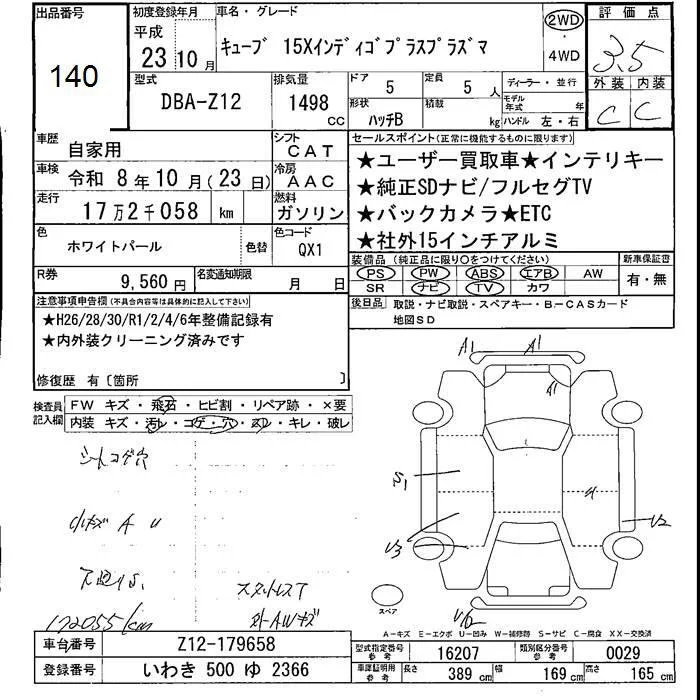 出品番号
140
初度登録年月
平成
23年10月
車名・グレード
キューブ 15Xインディゴプラスプラズマ
2WD
・
4WD
評価点
3.5
外装 内装
C C
型式
DBA-Z12
排気量
1498
CC
ドア
5
定員
5人
形状
ハッチB
積載
kg
ディーラー・並行
モデル年式 年
ハンドル 左・右
車歴
自家用
シフト
CAT
車検
令和 8年10月(23日)
冷房
AAC
走行
17万2千058 km
燃料
ガソリン
色
ホワイトパール
色替
色コード
QX1
R券
9,560円
名変通知期限
月 日
セールスポイント(正常に機能するものに限ります)
★ユーザー買取車★インテリキー
★純正SDナビ/フルセグTV
★バックカメラ★ETC
★社外15インチアルミ
装備品(純正品に限り○をつけてください)
新車保証書
PS PW ABS エアB AW
SR ナビ TV カワ
有・無
後日品
取説・ナビ取説・スペアキー・B-CASカード
地図SD
注意事項申告欄(不具合内容等は具体的に記入して下さい)
★H26/28/30/R1/2/4/6年整備記録有
★内外装クリーニング済みです
修復歴 有〔箇所 〕
検査員記入欄
FW キズ・飛石・ヒビ割・リペア跡・×要
内装 キズ・汚レ・コゲ・穴・スレ・キレ・破レ
シートコゲ穴
小キズ A U
172055km
スタットレスT
外AWキズ
A1
A1
A1
S1
U3
U2
スペア
A-キズ E-エクボ U-凹み W-補修跡 S-サビ C-腐食 XX-交換済
車台番号
Z12-179658
登録番号
いわき 500 ゆ 2366
型式指定番号
参考
16207
類別区分番号
参考
0029
車庫証明用
参考
長さ
389 cm
幅
169 cm
高さ
165 cm